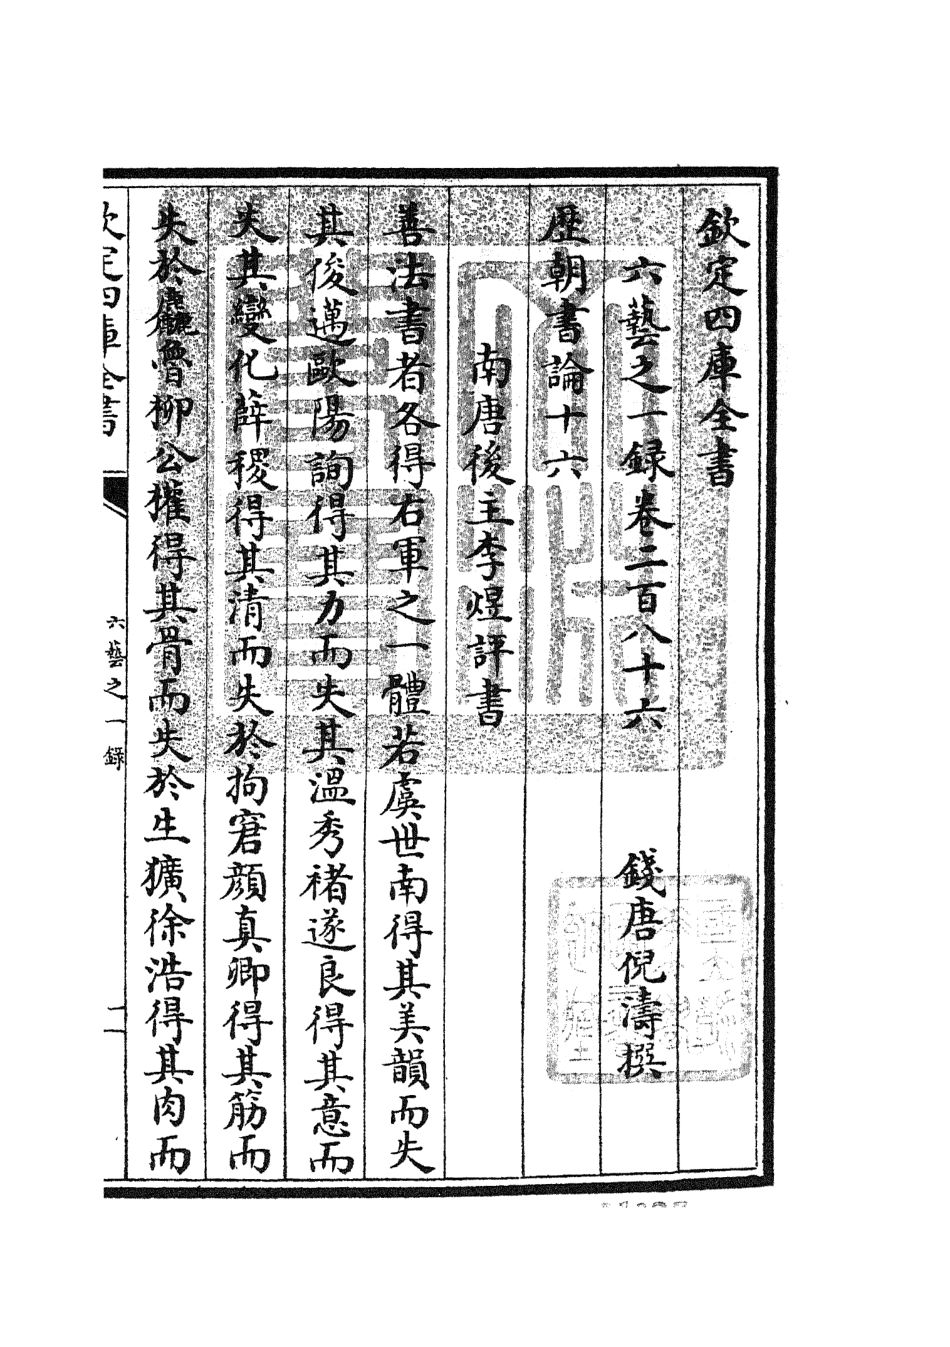 欽定四庫全書
六藝之一録卷二百八十六
錢唐倪濤撰
歴朝書論十六
南唐後主李煜評書
善法書者各得右軍之一體若虞世南得其美韻而失
其俊邁歐陽詢得其力而失其温秀褚遂良得其意而
失其變化薛稷得其清而失於拘窘顔真卿得其筋而
失於麤魯柳公權得其骨而失於生獷徐浩得其肉而
欽定四庫全書
六藝之一録